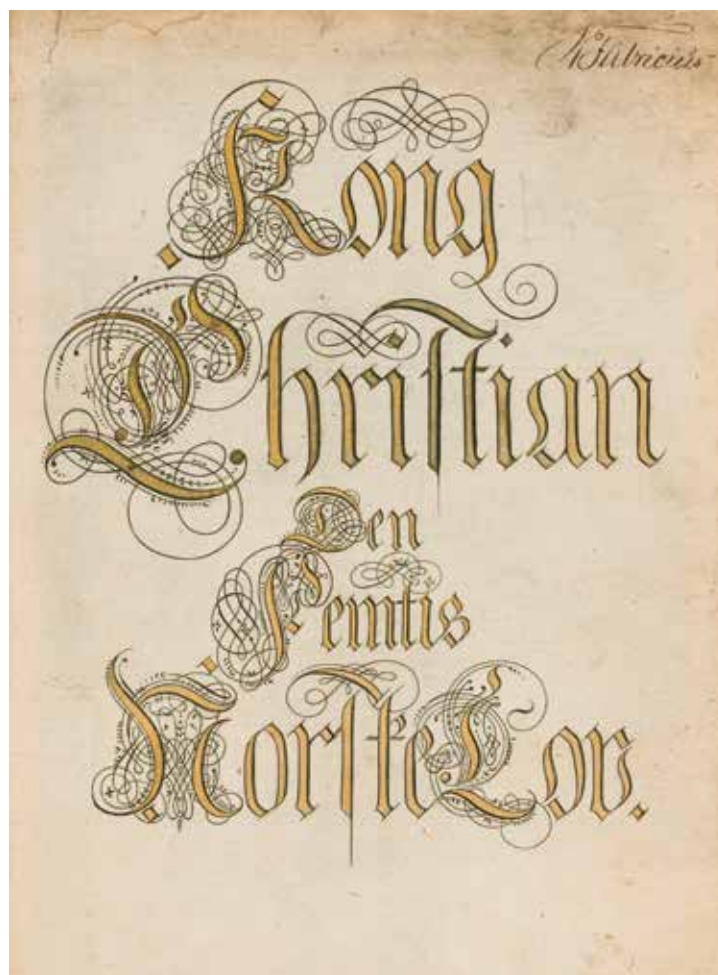 Kong
Christian
Den
Femtis
Norske Lov.